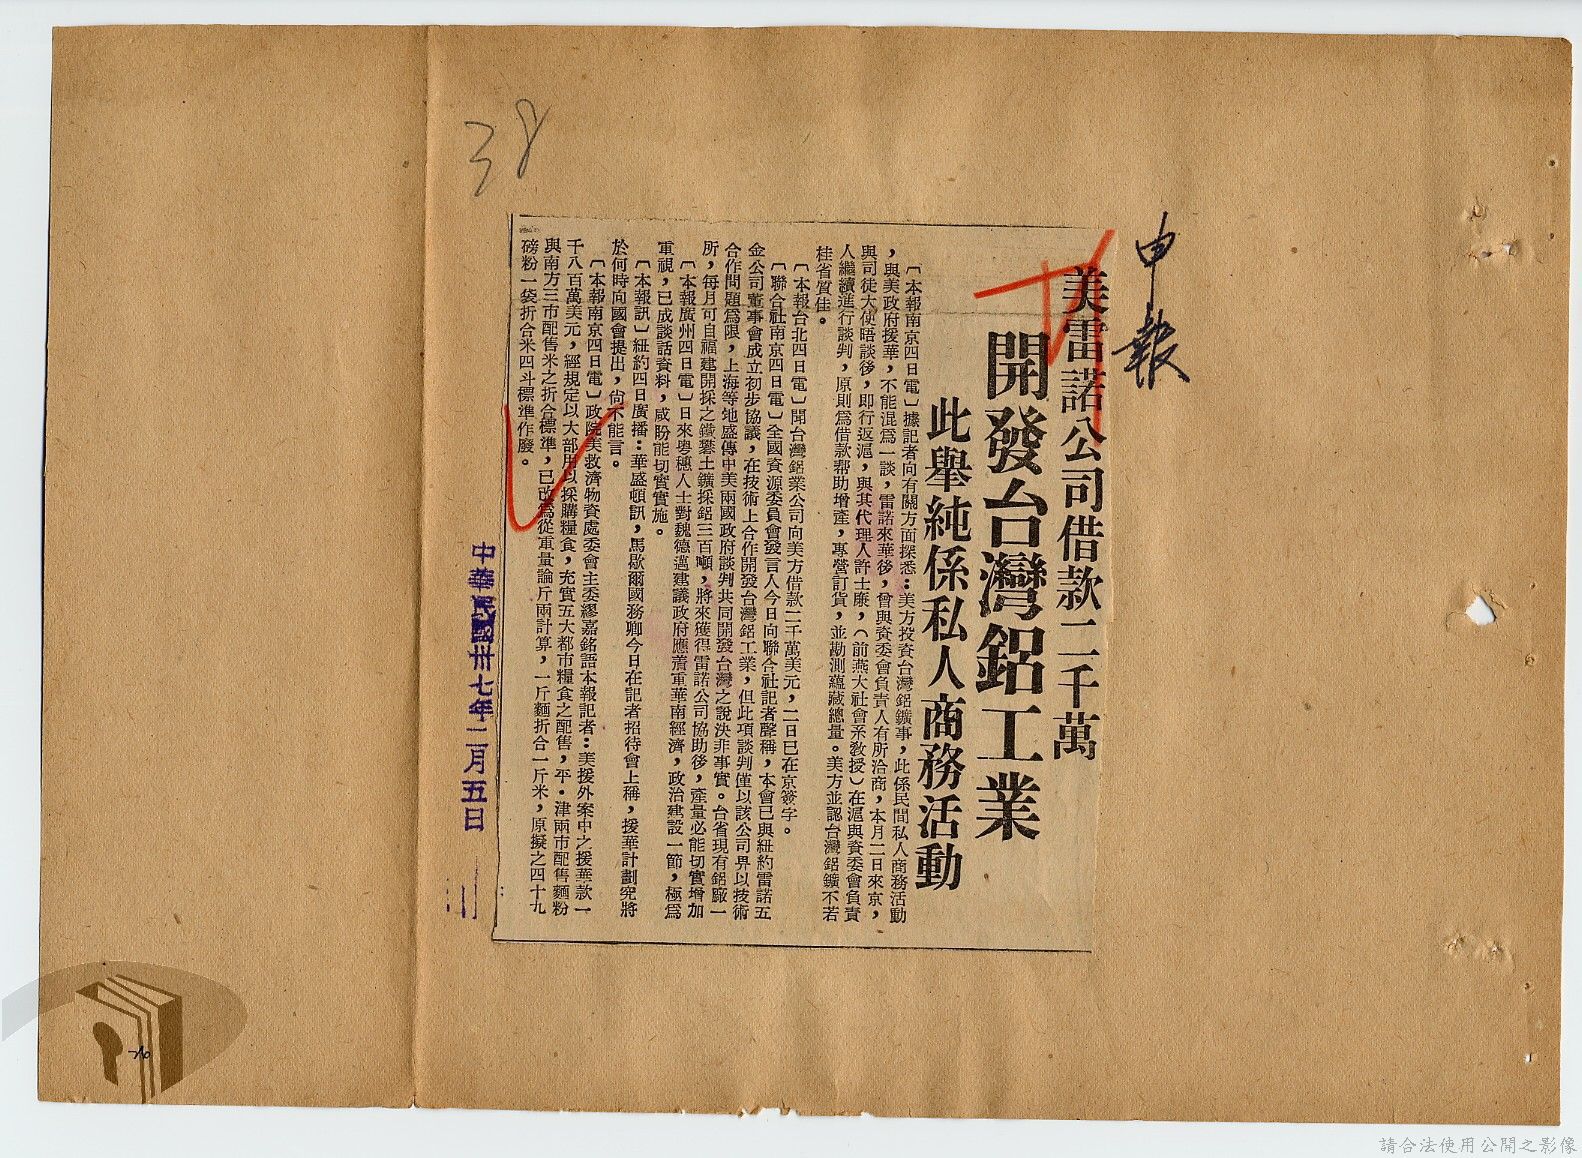 申報
美雷諾公司借款二千萬
開發台灣鋁工業
此舉純係私人商務活動
〔本報南京四日電〕據記者向有關方面探悉：美方投資台灣鋁鑛事，此係民間私人商務活動
，與美政府援華，不能混爲一談，雷諾來華後，曾與資委會負責人有所洽商，本月二日來京，
與司徒大使晤談後，即行返滬，與其代理人許士廉，（前燕大社會系教授）在滬與資委會負責
人繼續進行談判，原則爲借款帮助增產，專營訂貨，並勘測蘊藏總量。美方並認台灣鋁鑛不若
桂省質佳。
〔本報台北四日電〕聞台灣鋁業公司向美方借款二千萬美元，二日已在京簽字。
〔聯合社南京四日電〕全國資源委員會發言人今日向聯合社記者聲稱，本會已與紐約雷諾五
金公司董事會成立初步協議，在技術上合作開發台灣鋁工業，但此項談判僅以該公司畀以技術
合作問題爲限，上海等地盛傳中美兩國政府談判共同開發台灣之說決非事實。台省現有鋁廠一
所，每月可自福建開採之鐵礬土鑛採鋁三百噸，將來獲得雷諾公司協助後，產量必能切實增加
〔本報廣州四日電〕日來粵穗人士對魏德邁建議政府應着重華南經濟，政治建設一節，極爲
重視，已成談話資料，咸盼能切實實施。
〔本報訊〕紐約四日廣播：華盛頓訊，馬歇爾國務卿今日在記者招待會上稱，援華計劃究將
於何時向國會提出，尙不能言。
〔本報南京四日電〕政院美救濟物資處委會主委繆嘉銘語本報記者：美援外案中之援華款一
千八百萬美元，經規定以大部用以採購糧食，充實五大都市糧食之配售，平·津兩市配售麵粉
與南方三市配售米之折合標準，已改爲從重量論斤兩計算，一斤麵折合一斤米，原擬之四十九
磅粉一袋折合米四斗標準作廢。
38
中華民國卅七年二月五日
請合法使用公開之影像